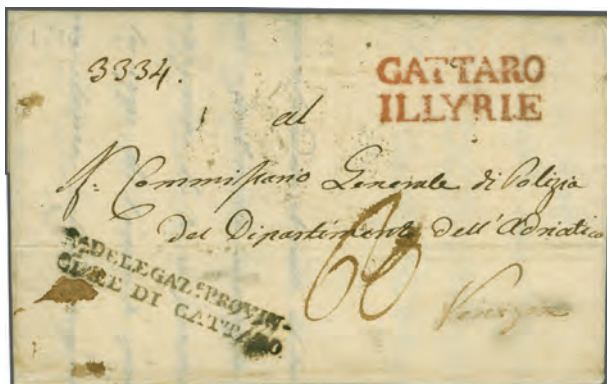 3334.
CATTARO
ILLYRIE
al
Commissario Generale di Polizia
del Dipartimento dell'Adriatico
Venezia
R. DELEGAZ.E PROVIN-
CIALE DI CATTARO